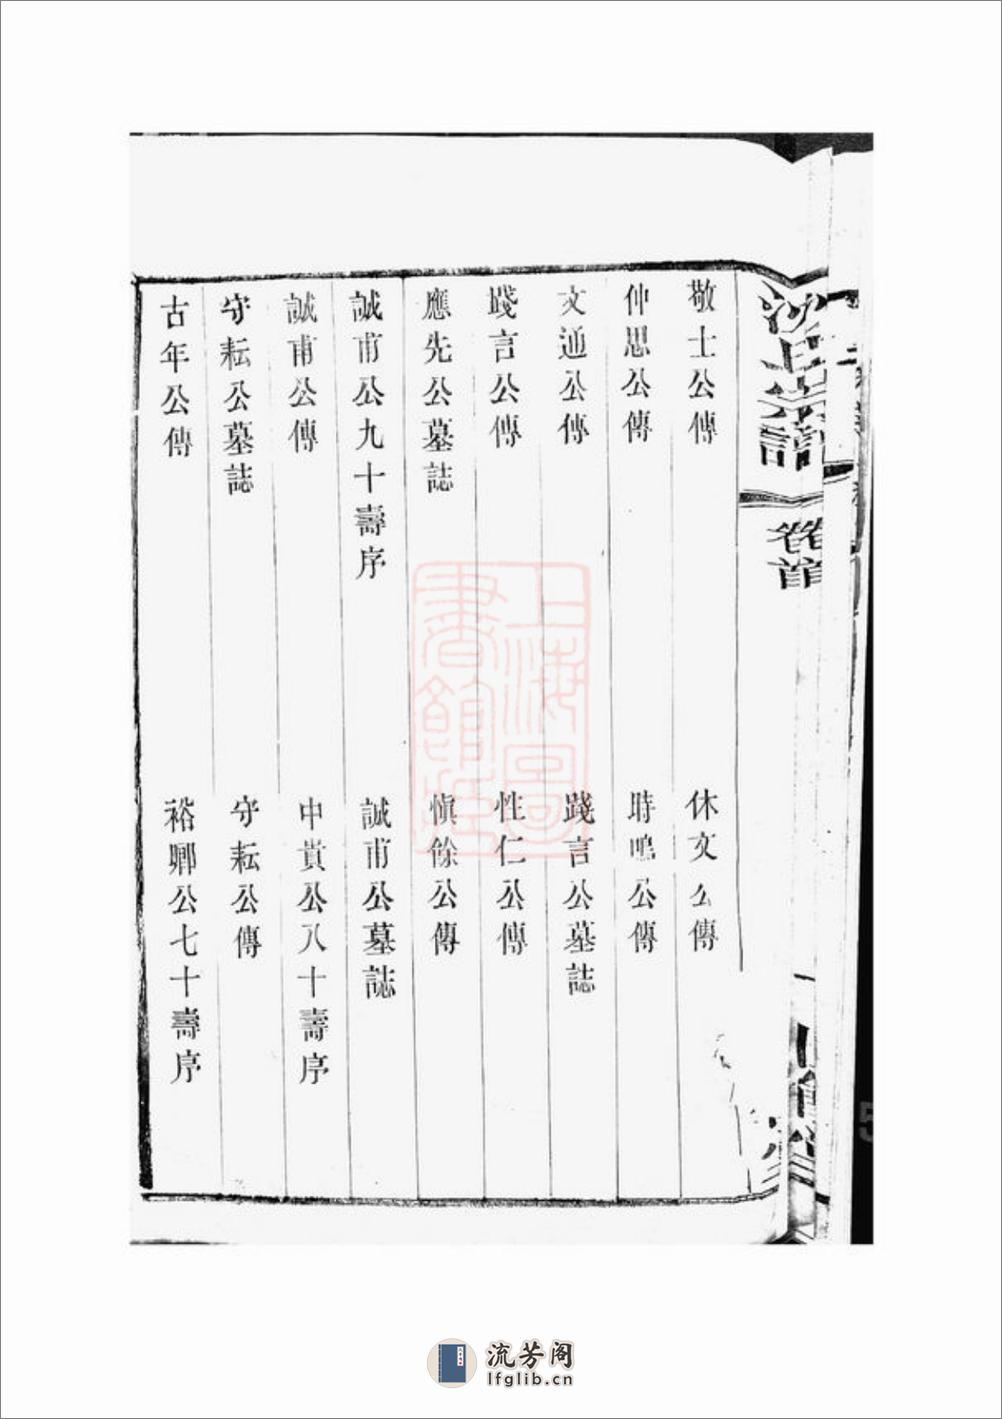 敬士公傳
休文公傳
仲思公傳
時鳴公傳
文通公傳
踐言公墓誌
踐言公傳
性仁公傳
應先公墓誌
愼餘公傳
誠甫公九十壽序
誠甫公墓誌
誠甫公傳
申黃公八十壽序
守耘公墓誌
守耘公傳
古年公傳
裕卿公七十壽序
卷首
上海圖書館藏
流芳阁
lfglib.cn